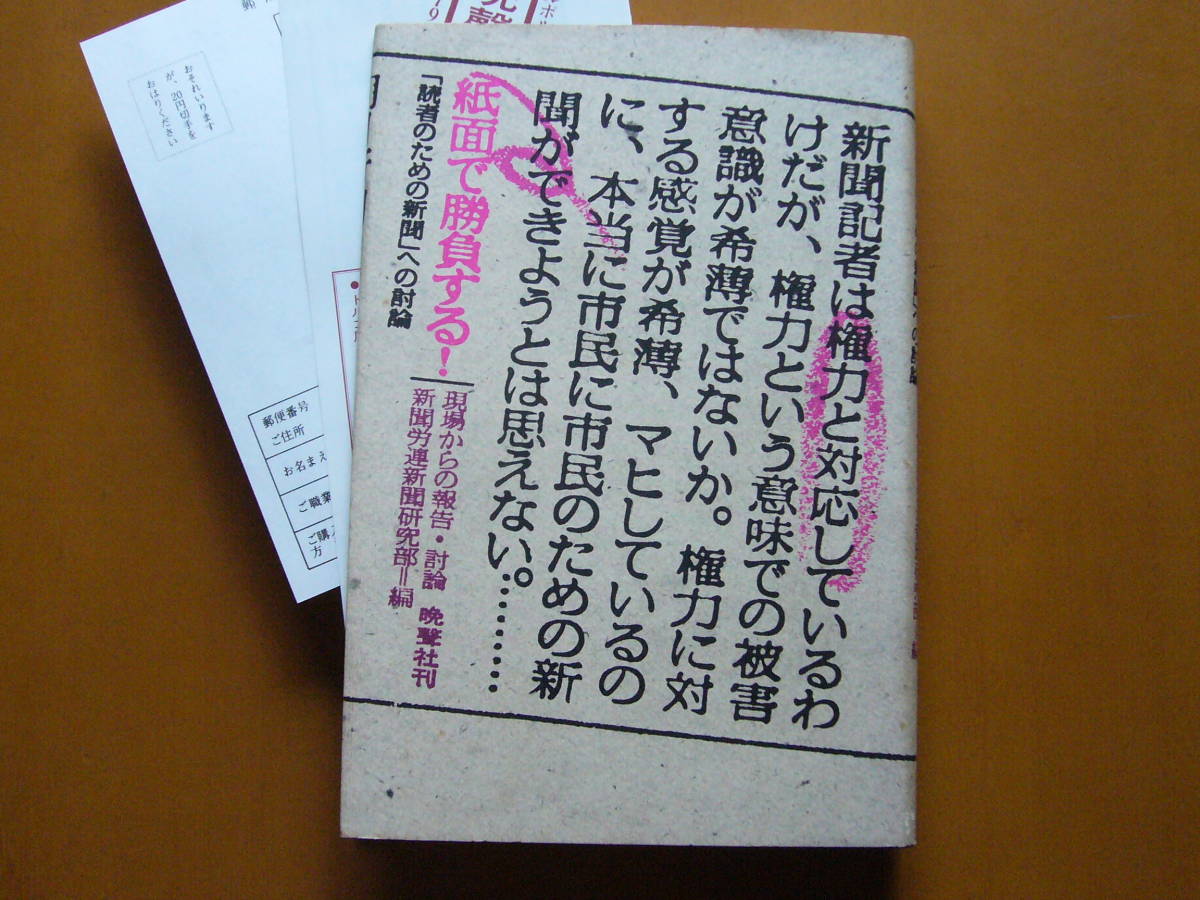 新聞記者は権力と対応しているわ
けだが、権力という意味での被害
意識が希薄ではないか。権力に対
する感覚が希薄、マヒしているの
に、本当に市民に市民のための新
聞ができようとは思えない。………
紙面で勝負する!
「読者のための新聞」への討論
現場からの報告・討論
新聞労連新聞研究部=編
晩聲社刊
おそれいります
が、20円切手を
おはりください
郵便番号
ご住所
お名まえ
ご職業
方